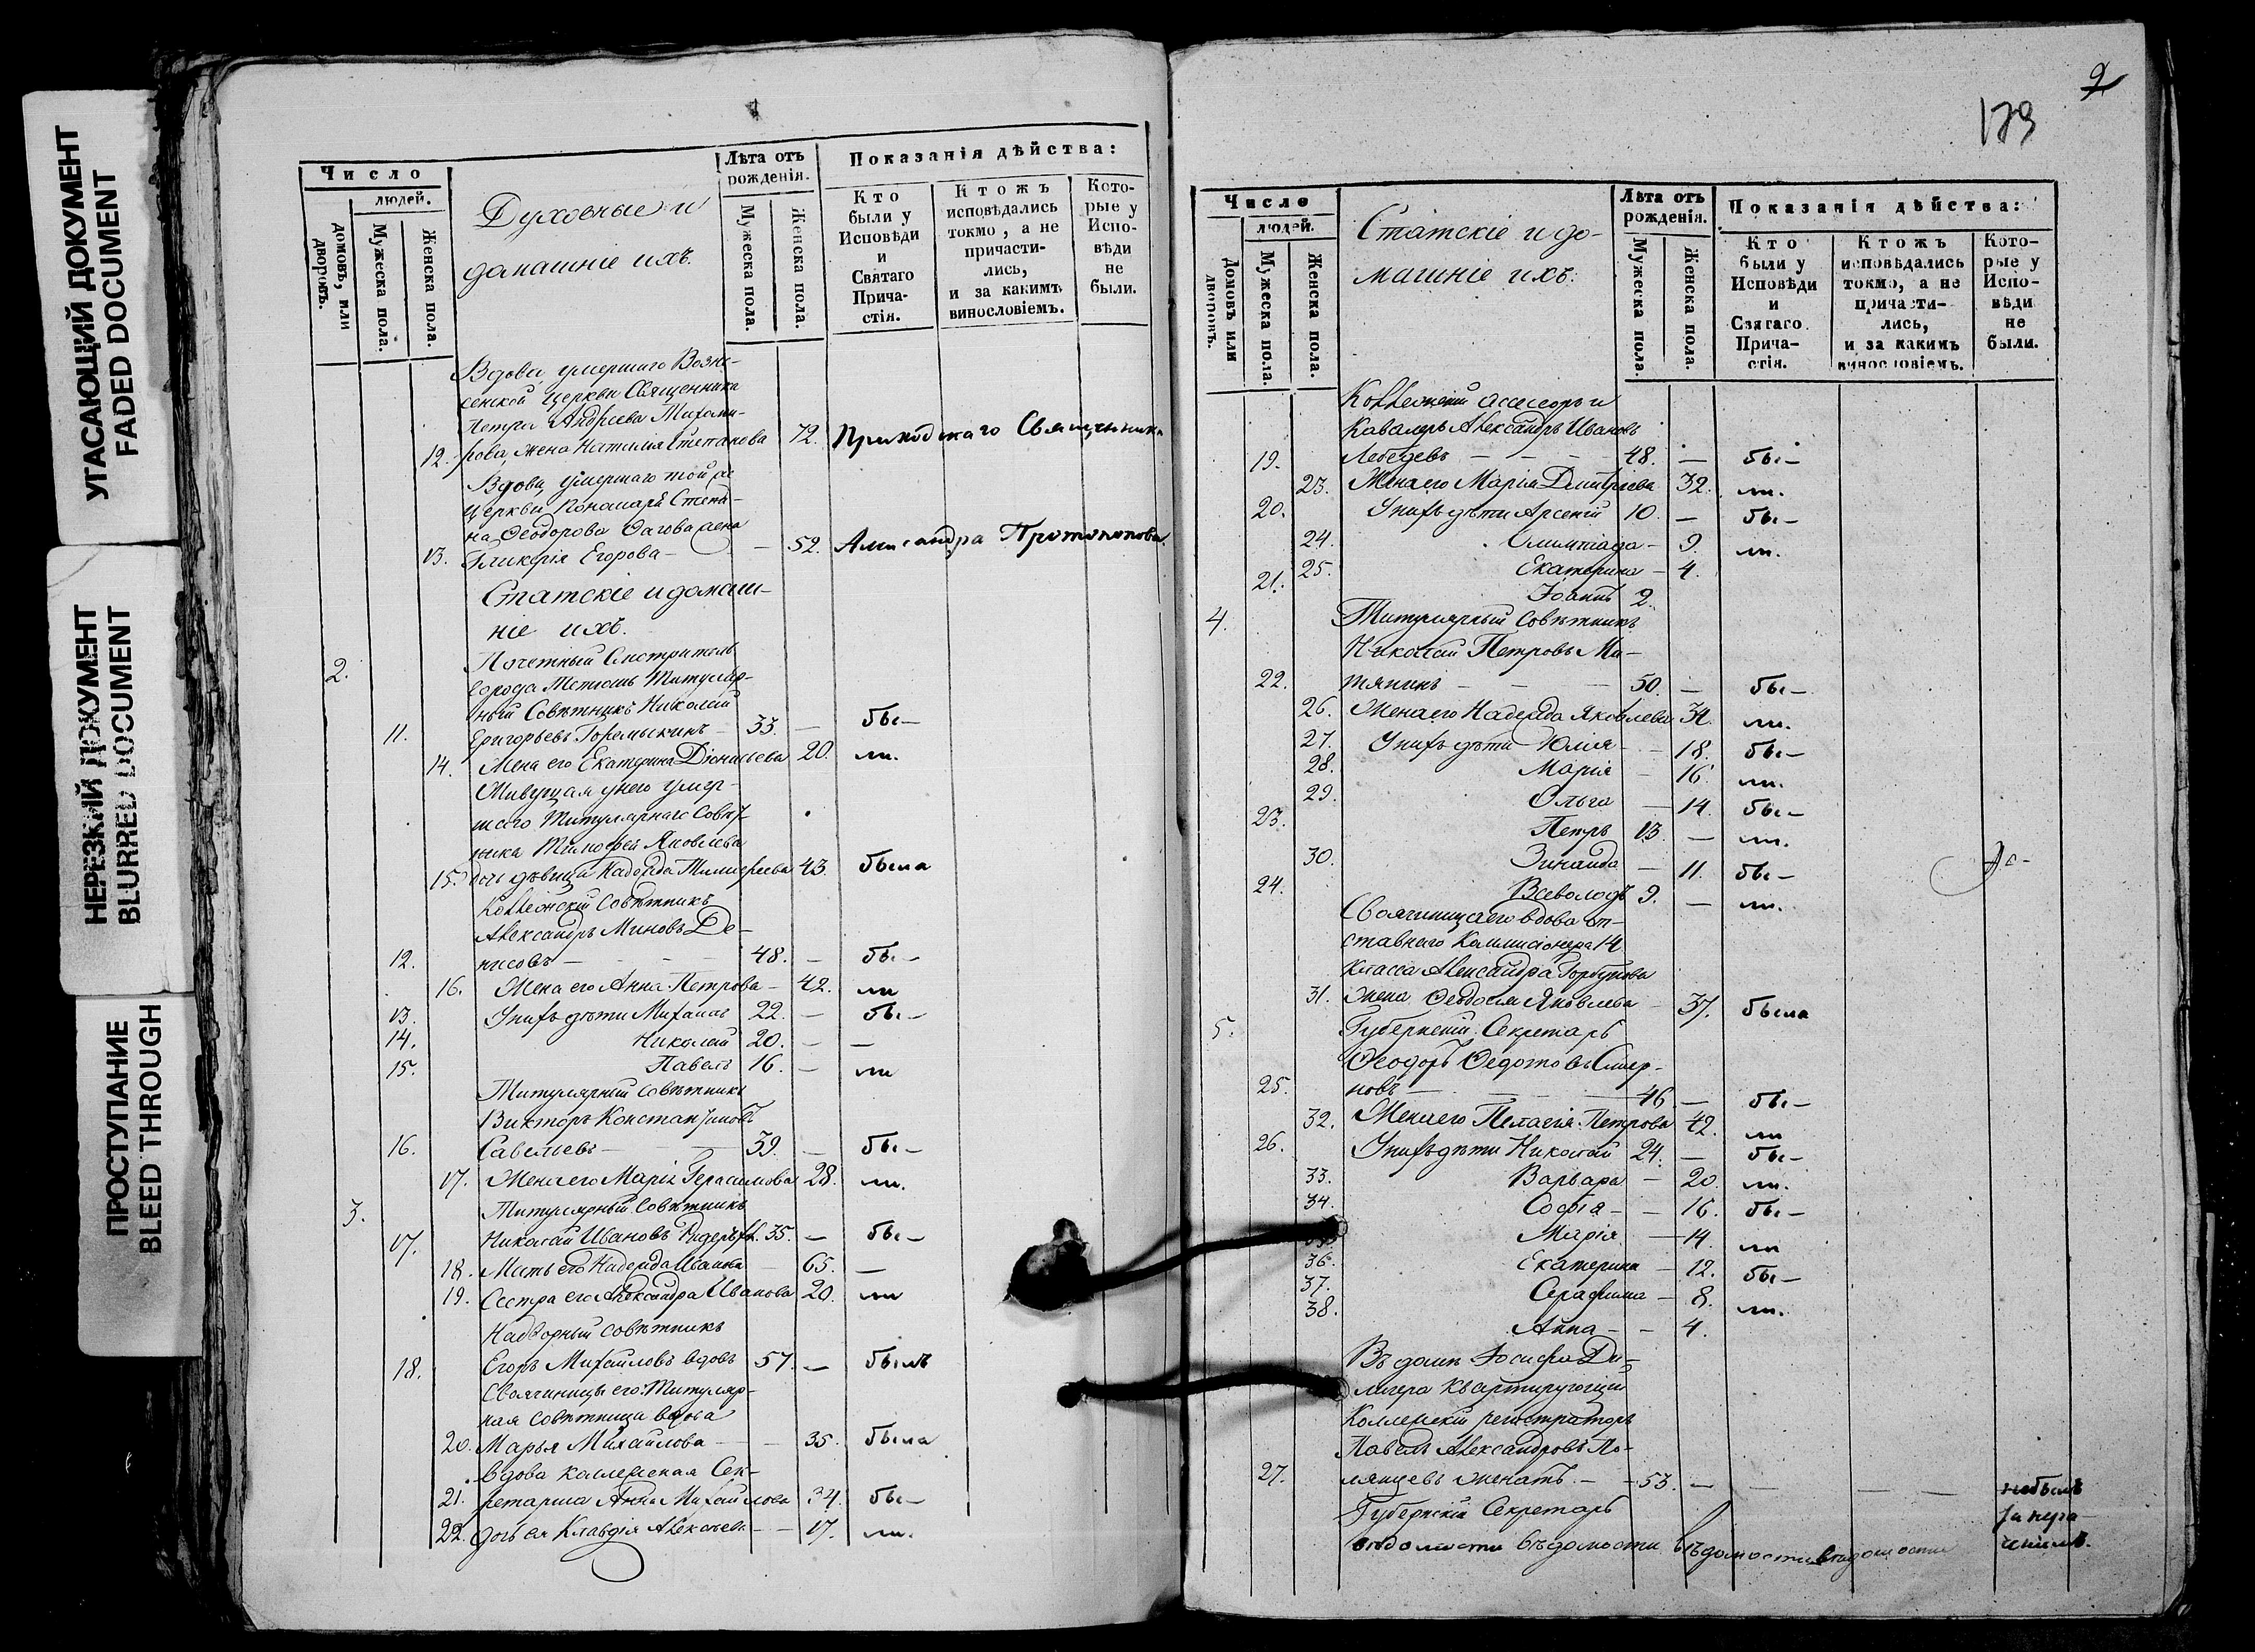 УГАСАЮЩИЙ ДОКУМЕНТ
FADED DOCUMENT
НЕРЕЗКИЙ ДОКУМЕНТ
BLURRED DOCUMENT
ПРОСТУПАНИЕ
BLEED THROUGH
Число
людей.
домовъ, или дворовъ.
Мужеска пола.
Женска пола.
Духовные и
домашніе ихъ.
Лѣта отъ рожденія.
Мужеска пола.
Женска пола.
Показанія дѣйства:
Кто были у Исповѣди и Святаго Причастія.
Ктожъ исповѣдались токмо, а не причастились, и за какимъ винословіемъ.
Которые у Исповѣди не были.
Вдова, умершаго Возне-
сенской церкви Священника
Петра Андреева Тихоми-
12. рова, жена Наталия Степанова 72. Приходскаго Священника
Вдова, умершаго той же
церкви Пономаря Степа-
на Ѳеодорова жена
13. Гликерія Егорова — — 52. Александра Протопопова
Статскіе и домаш-
ніе ихъ.
2. Почетный Смотритель
города Тетюшъ Титуляр-
ный Совѣтникъ Николай
11. Григорьевъ Горемыкинъ — 33. — бы —
14. Жена его Екатерина Діонисьева 20. ли.
Живущая у него умер-
шаго Титулярнаго Совѣт-
ника Тимофея Яковлева
15. дочь дѣвица Надежда Тимофеева 43. была
Коллежскій Совѣтникъ
Александръ Миновъ Де-
12. нисовъ — — — 48. — бы —
16. Жена его Анна Петрова — 42. ли
13. У нихъ дѣти Михаилъ 22. — бы —
14. Николай 20. — —
15. Павелъ 16. — ли
Титулярный совѣтникъ
Викторъ Константиновъ
16. Савельевъ — — 39. — бы —
17. Жена его Марія Герасимова 28. ли.
3. Титулярный Совѣтникъ
17. Николай Ивановъ 35. — бы —
18. Мать его Надежда Иванова — 65. —
19. Сестра его Александра Иванова 20. ли
Надворный совѣтникъ
18. Егоръ Михайловъ вдовъ 57. — былъ
Своячиницы его: Титуляр-
ная совѣтница вдова
20. Марья Михайлова — — 35. была
Вдова коллежская Сек-
21. ретарша Анна Михайлова 34. бы —
22. дочь ея Клавдія Алексѣева — — 17. ли.
9
179
Число
людей.
Домовъ или дворовъ.
Мужеска пола.
Женска пола.
Статскіе и до-
машніе ихъ:
Лѣта отъ рожденія.
Мужеска пола.
Женска пола.
Показанія дѣйства:
Кто были у Исповѣди и Святаго Причастія.
Ктожъ исповѣдались токмо, а не причастились, и за какимъ винословіемъ.
Которые у Исповѣди не были.
Коллежскій Ассесоръ и
Кавалеръ Александръ Ивановъ
19. Лебедевъ — — — 48. — бы —
23. Жена его Марія Дмитріева 32. ли.
20. У нихъ дѣти Арсеній 10. — бы —
24. Олимпіада — 9. ли.
25. Екатерина — 4.
21. Іоаннъ 2.
4. Титулярный Совѣтникъ
Николай Петровъ Ми-
22. тякинъ — — — 50. — бы —
26. Жена его Надежда Яковлева 34. ли.
27. У нихъ дѣти Юлія — — 18. бы —
28. Марія — 16. ли.
29. Ольга — 14. бы —
23. Петръ 13. — ли.
30. Зинаида — 11. бы —
24. Всеволодъ 9. — ли.
Своячиница его вдова от-
ставнаго Коммисіонера 14
класса Александра Горбунова
31. жена Ѳеодосія Яковлева — 37. была
5. Губернскій Секретарь
Ѳеодоръ Ѳедотовъ Смир-
25. новъ — — — 46. — бы —
32. Жена его Пелагія Петрова 42. ли
26. У нихъ дѣти Николай 24. — бы —
33. Варвара — 20. ли.
34. Софія — — 16. бы —
35. Марія — 14. ли
36. Екатерина — 12. бы —
37. Серафима — 8. ли.
38. Анна — — 4.
Въ домѣ Іосифа
квартирующій
Коллежскій регистраторъ
Павелъ Александровъ По-
27. лянцевъ женатъ. — — 53. — — — — небылъ
Губернскій Секретарь
вѣдомости вѣдомости вѣдомости